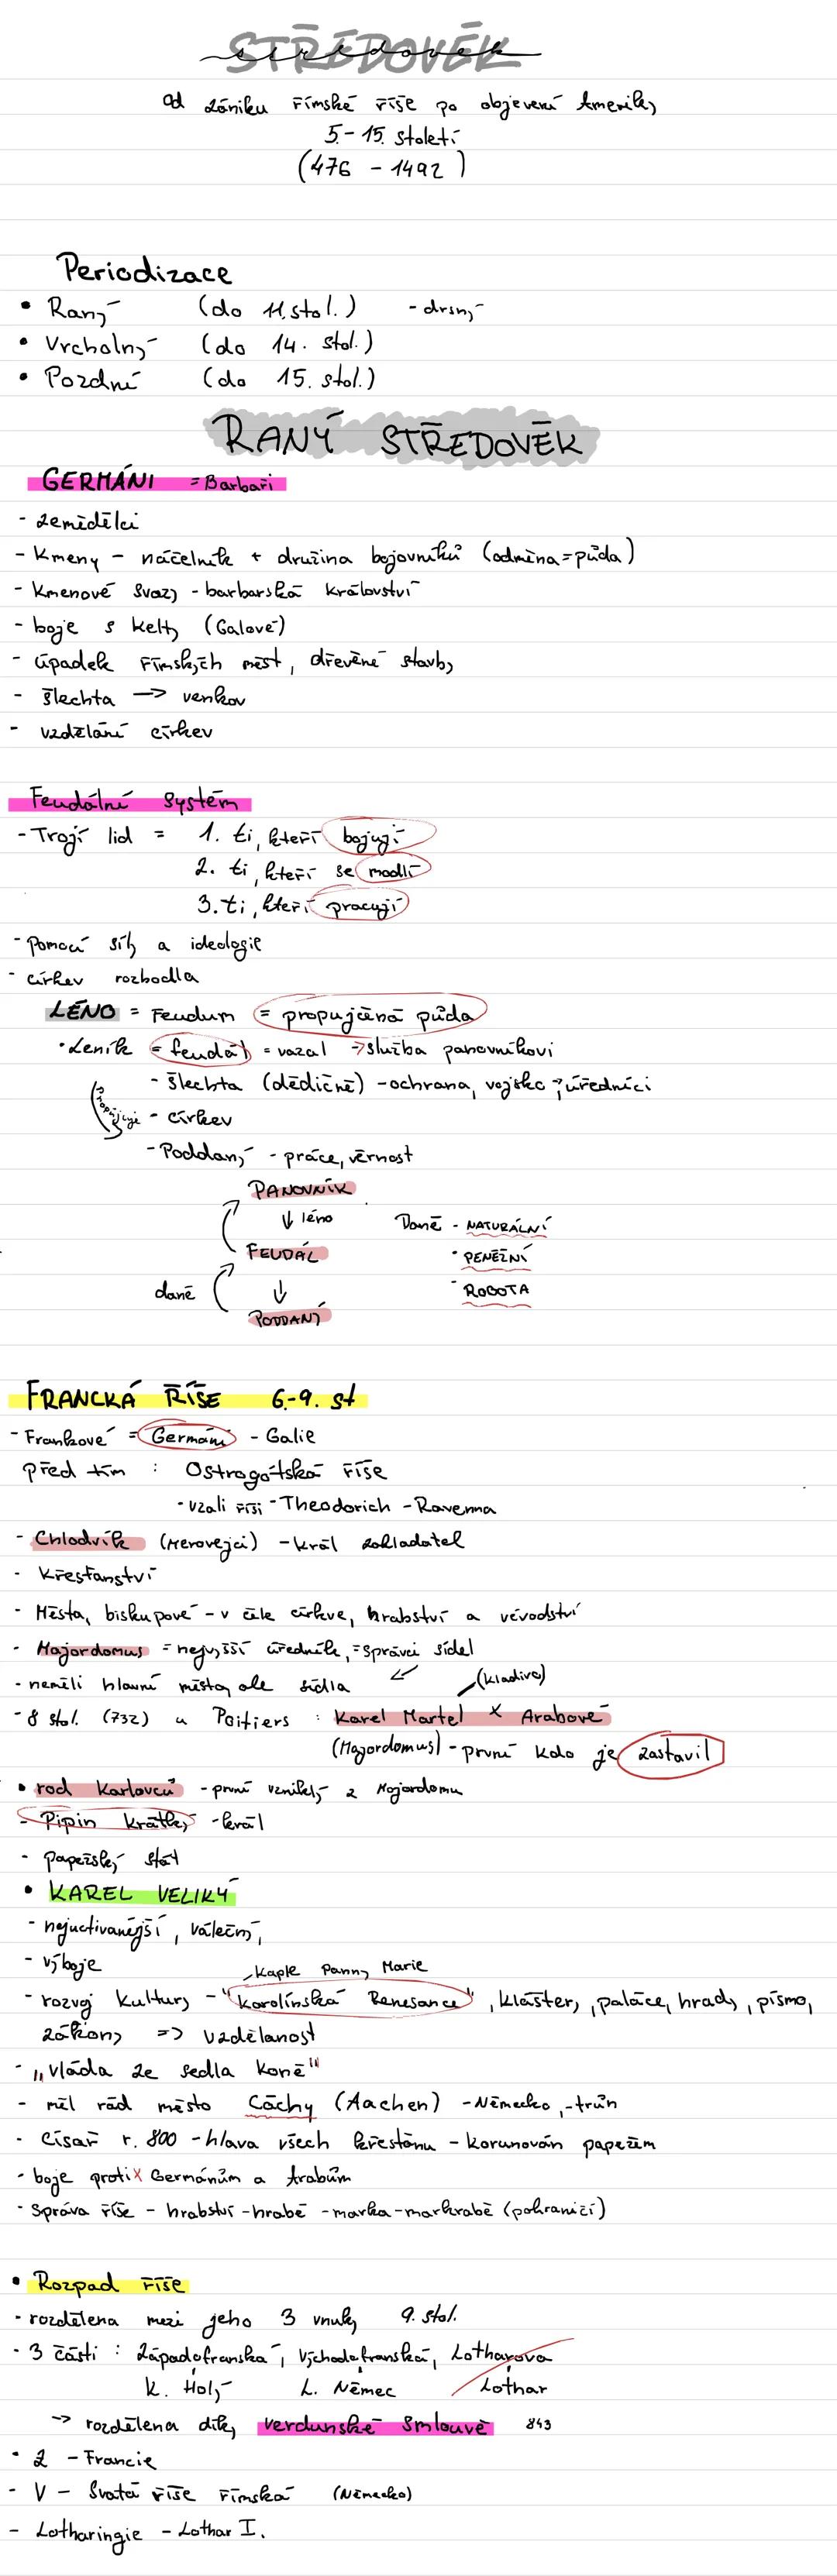 STŘEDOVĚK
středověk
od zániku římské říše po objevení Ameriky
5.-15. století
(476 - 1492)
Periodizace
• Raný (do 11. stol.) - drsný
• Vrcholný (do 14. stol.)
• Pozdní (do 15. stol.)
RANÝ STŘEDOVĚK
GERMÁNI = Barbaři
- zemědělci
- Kmeny - náčelník + družina bojovníků (odměna = půda)
- Kmenové svazy - barbarská království
- boje s Kelty (Galové)
- úpadek římských měst, dřevěné stavby
- šlechta → venkov
- vzdělání církev
Feudální systém
- Trojí lid = 1. ti, kteří bojují
2. ti, kteří se modlí
3. ti, kteří pracují
- pomocí síly a ideologie
- církev rozhodla
LÉNO = Feudum = propujčená půda
• Leník = feudál = vazal → služba panovníkovi
- šlechta (dědičné) - ochrana, vojsko, úředníci
propůjčuje - církev
- Poddaný - práce, věrnost
PANOVNÍK
↓ léno Daně - NATURÁLNÍ
FEUDÁL - PENĚŽNÍ
daně ↓ - ROBOTA
PODDANÝ
FRANCKÁ ŘÍŠE 6.-9. st
- Frankové = Germáni - Galie
před tím : Ostrogótská říše
- vzali říši - Theodorich - Ravenna
- Chlodvík (Merovejci) - král zakladatel
- Křesťanství
- Města, biskupové - v čele církve, hrabství a vévodství
- Majordomus = nejvyšší úředník, = správci sídel
- neměli hlavní město, ale sídla
(kladivo)
- 8 stol. (732) u Poitiers : Karel Martel x Arabové
(Majordomus) - první kdo je zastavil
• rod Karlovců - první vzniklý z Majordomu
- Pipin krátký - král
- papežský stát
• KAREL VELIKÝ
- nejuctívanější, válečný,
- výboje
Kaple Panny Marie
- rozvoj kultury - "Karolínská Renesance", kláštery, paláce, hrady, písmo,
zákony => vzdělanost
- „vláda ze sedla koně"
- měl rád město Cáchy (Aachen) - Německo, - trůn
- Císař r. 800 - hlava všech křesťanu - korunován papežem
- boje proti x Germánům a Arabům
- správa říše - hrabství - hrabě - marka - markrabě (pohraničí)
• Rozpad říše
- rozdělena mezi jeho 3 vnuky 9. stol.
- 3 části : Západofranská, Východofranská, Lotharova
K. Holý L. Němec Lothar
→ rozdělena díky verdunské smlouvě 843
- Z - Francie
- V - Svatá říše římská (Německo)
- Lotharingie - Lothar I.